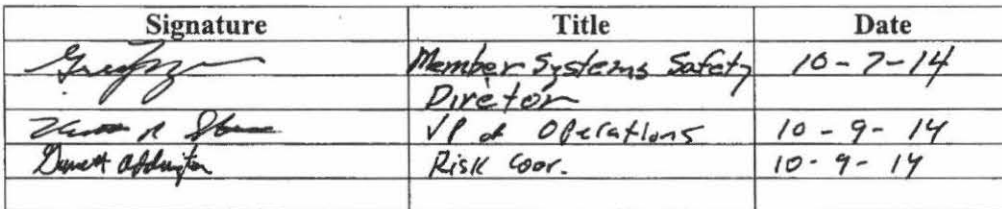 Signature Title Date
Member Systems Safety 10-7-14
Director
R VP of Operations 10-9-14
Addington Risk Coor. 10-9-14